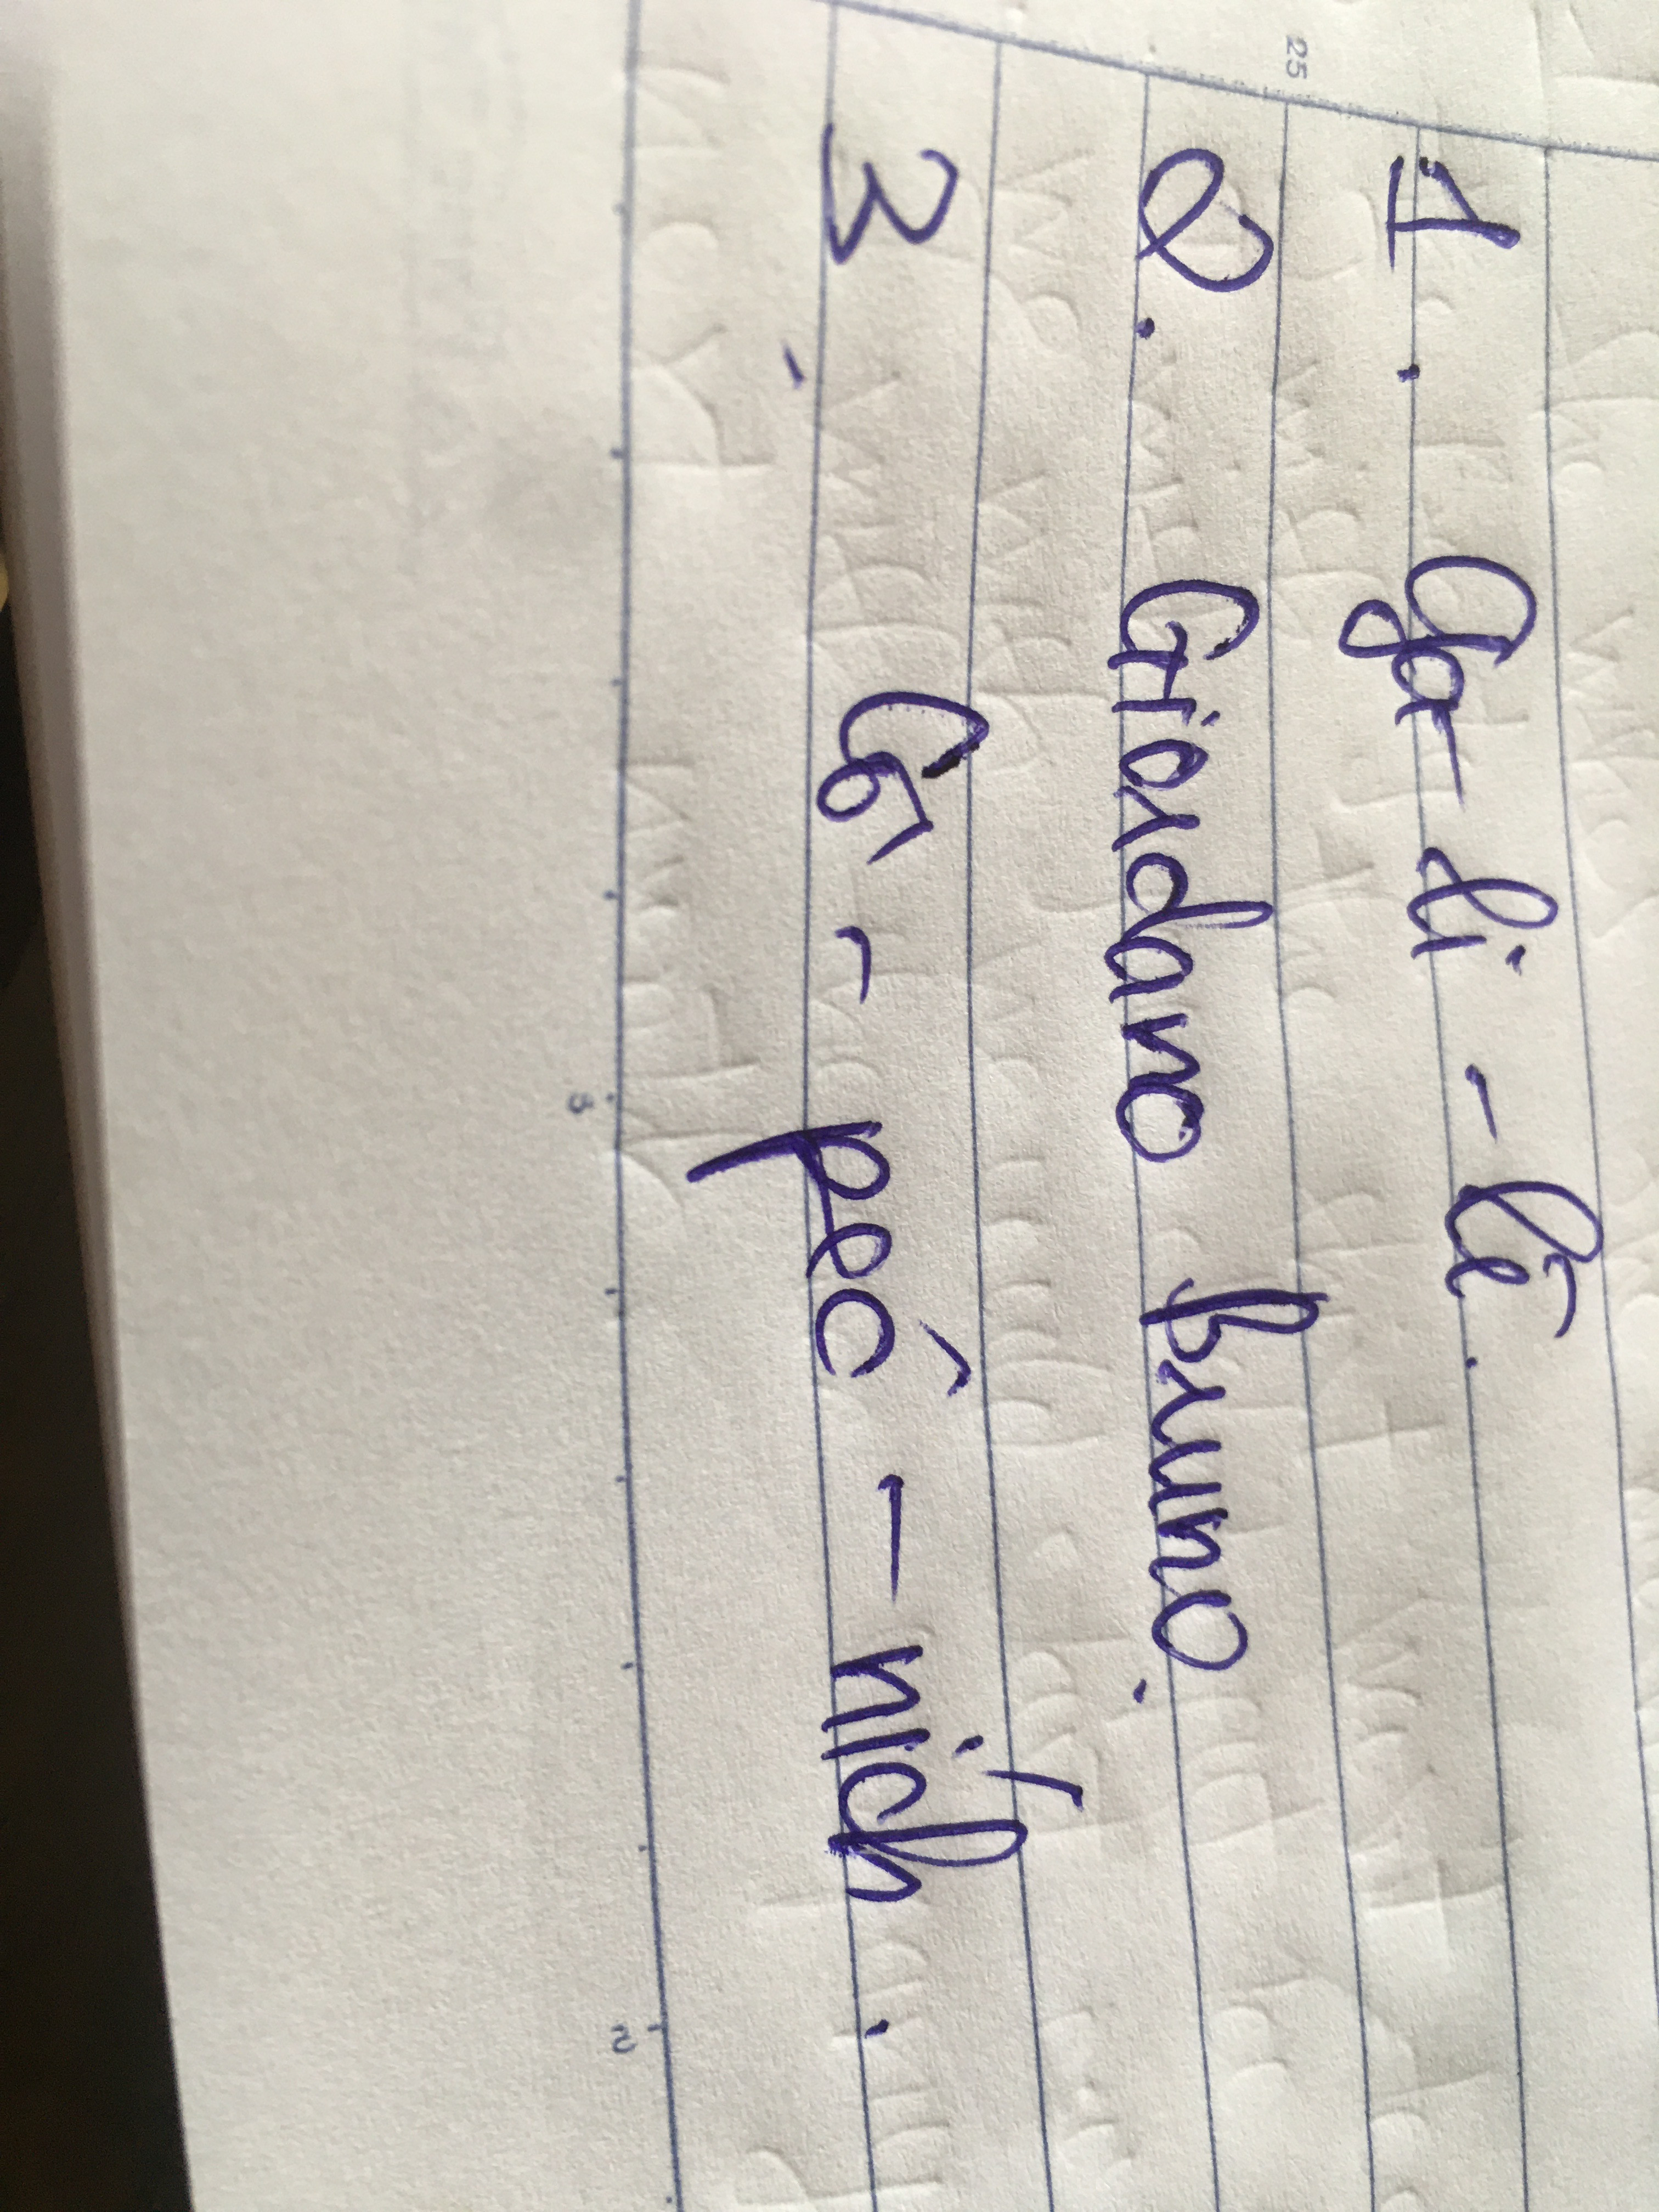 25
1. Ga-li-lê.
2. Giordano bruno.
3. Cô - pec - ních.
3
5